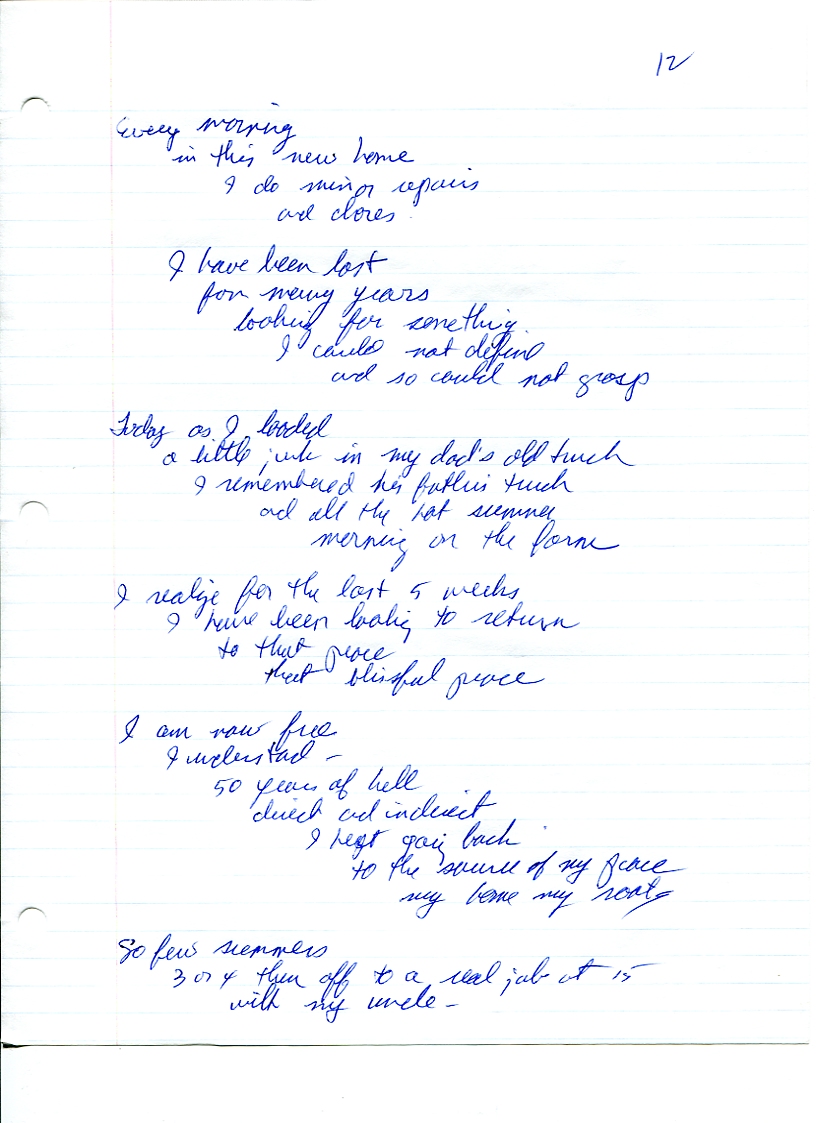 12
Every morning
in this new home
I do minor repairs
and chores.
I have been lost
for many years
looking for something.
I could not define
and so could not grasp
Today as I loaded
a little junk in my dad's old truck
I remembered his father's truck
and all the hot summer
morning on the farm
I realize for the last 5 weeks
I have been looking to return
to that peace
that blissful peace
I am now free
I understand -
50 years of hell
direct and indirect
I kept going back
to the source of my peace
my home my roots
So few summers
3 or 4 then off to a real job at 15
with my uncle -